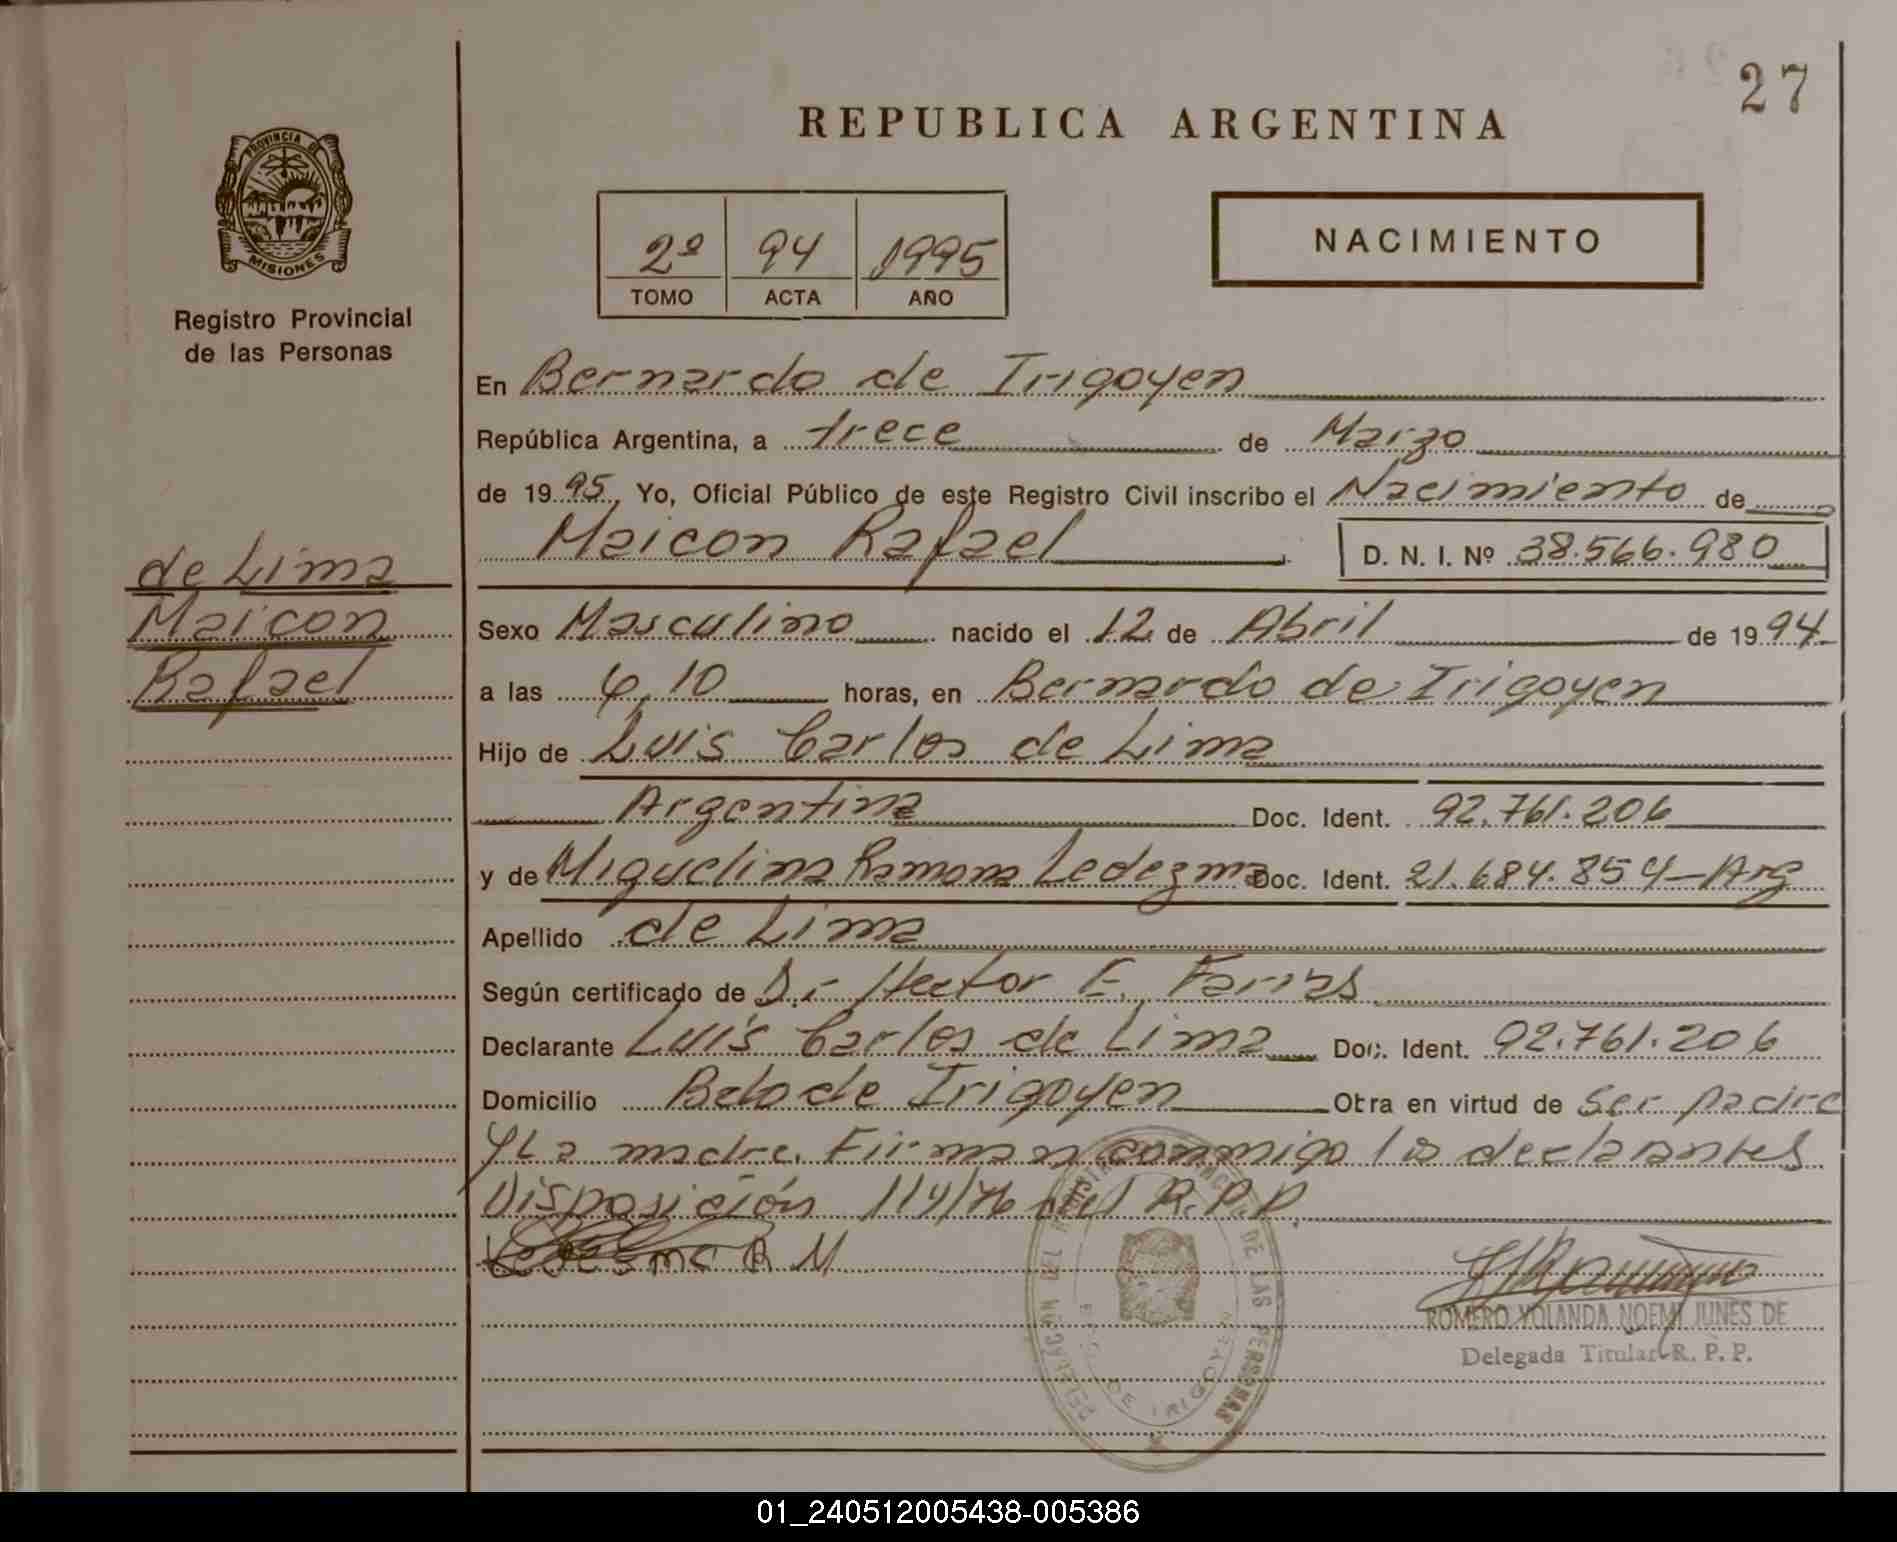 27
REPUBLICA ARGENTINA
PROVINCIA DE
MISIONES
Registro Provincial
de las Personas
2º 94 1995
TOMO ACTA AÑO
NACIMIENTO
En Bernardo de Irigoyen
República Argentina, a trece de Marzo
de 1995. Yo, Oficial Público de este Registro Civil inscribo el Nacimiento de
Maicon Rafael D. N. I. Nº 38.566.980
de Lima
Maicon
Rafael
Sexo Masculino nacido el 12 de Abril de 1994
a las 4,10 horas, en Bernardo de Irigoyen
Hijo de Luis Carlos de Lima
Argentina Doc. Ident. 92.761.206
y de Miguelina Ramona Ledezma Doc. Ident. 21.684.854-Arg
Apellido de Lima
Según certificado de Dr Hector E. Farias
Declarante Luis Carlos de Lima Doc. Ident. 92.761.206
Domicilio Bdo de Irigoyen Otra en virtud de Ser padre
y La madre. Firman conmigo los declarantes
Disposición 114/76 del R.P.P.
Ledesma R M
ROMERO YOLANDA NOEMI JUNES DE
Delegada Titular R. P. P.
DELEGACIÓN DEL REGISTRO PROVINCIAL DE LAS PERSONAS
BDO. DE IRIGOYEN
01_240512005438-005386